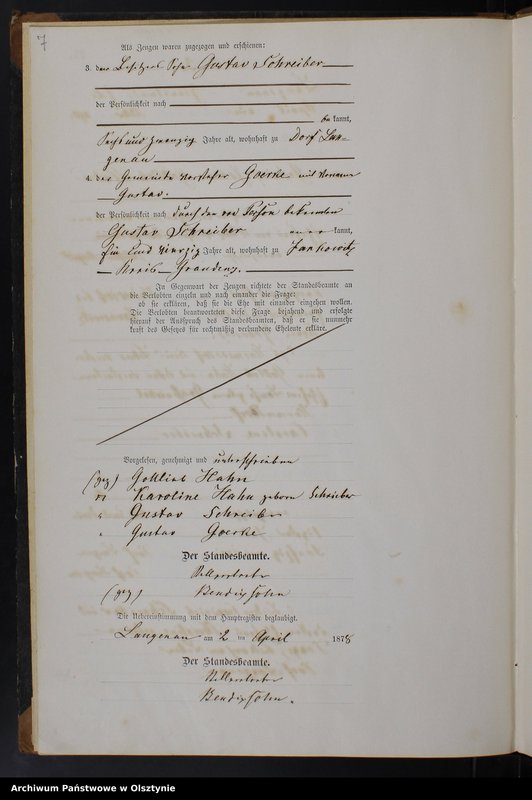 7
Als Zeugen waren zugezogen und erschienen:
3. der Besitzers Sohn Gustav Schreiber
der Persönlichkeit nach
bekannt,
Sechs und zwanzig Jahre alt, wohnhaft zu Dorf Lan-
genau
4. der Gemeinde Vorsteher Goerke mit Vornamen
Gustav.
der Persönlichkeit nach durch den von Person bekannten
Gustav Schreiber anerkannt,
Jahre alt, wohnhaft zu
Kreis Graudenz.
In Gegenwart der Zeugen richtete der Standesbeamte an
die Verlobten einzeln und nach einander die Frage:
ob sie erklären, daß sie die Ehe mit einander eingehen wollen.
Die Verlobten beantworteten diese Frage bejahend und erfolgte
hierauf der Ausspruch des Standesbeamten, daß er sie nunmehr
kraft des Gesetzes für rechtmäßig verbundene Eheleute erkläre.
Vorgelesen, genehmigt und unterschrieben
(gez) Gottlieb Hahn
Karoline Hahn geborn Schreiber
" Gustav Schreiber
" Gustav Goerke
Der Standesbeamte.
(gez) Bendixsohn
Die Uebereinstimmung mit dem Hauptregister beglaubigt.
Langenau am 2 ten April 1878
Der Standesbeamte.
Bendixsohn.
Archiwum Państwowe w Olsztynie